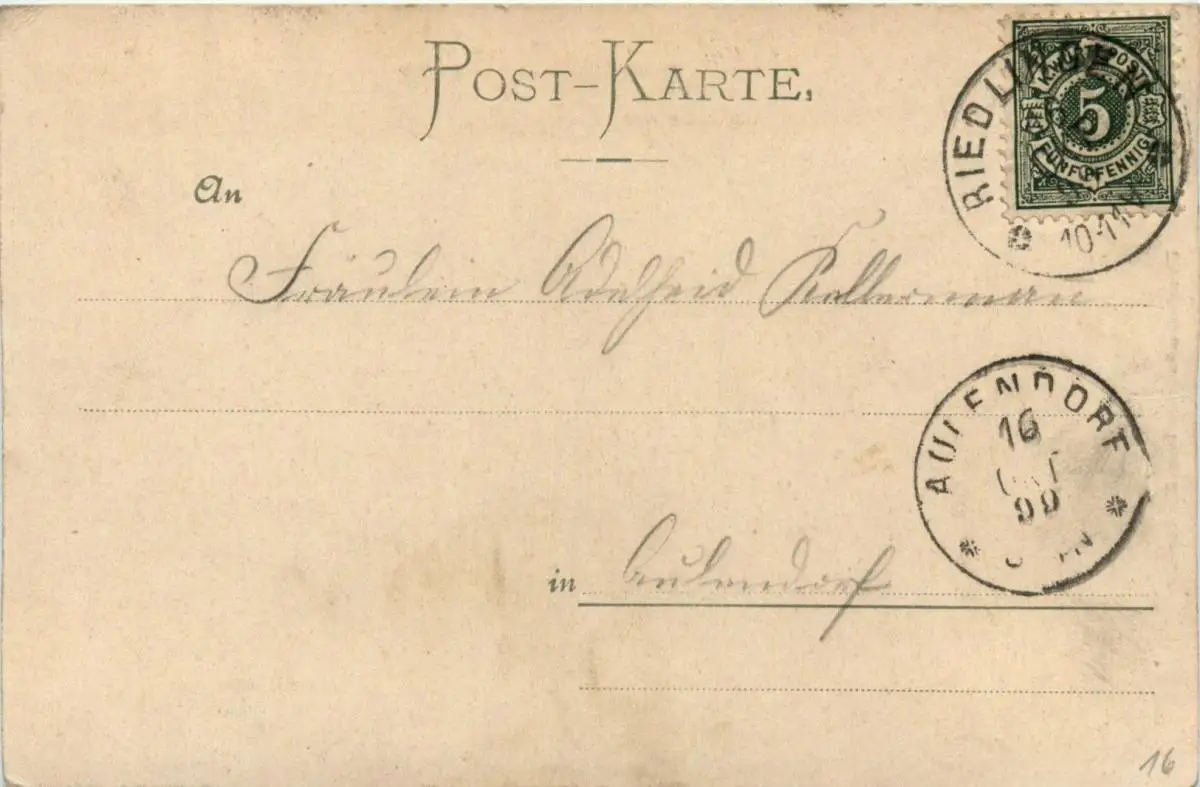 POST-KARTE.
K.WÜRTT.POST
5
FÜNF PFENNIG
RIEDLINGEN
10-11
An
Fräulein Adelheid Kellerman
AULENDORF
16
OKT
99
in Aulendorf
16